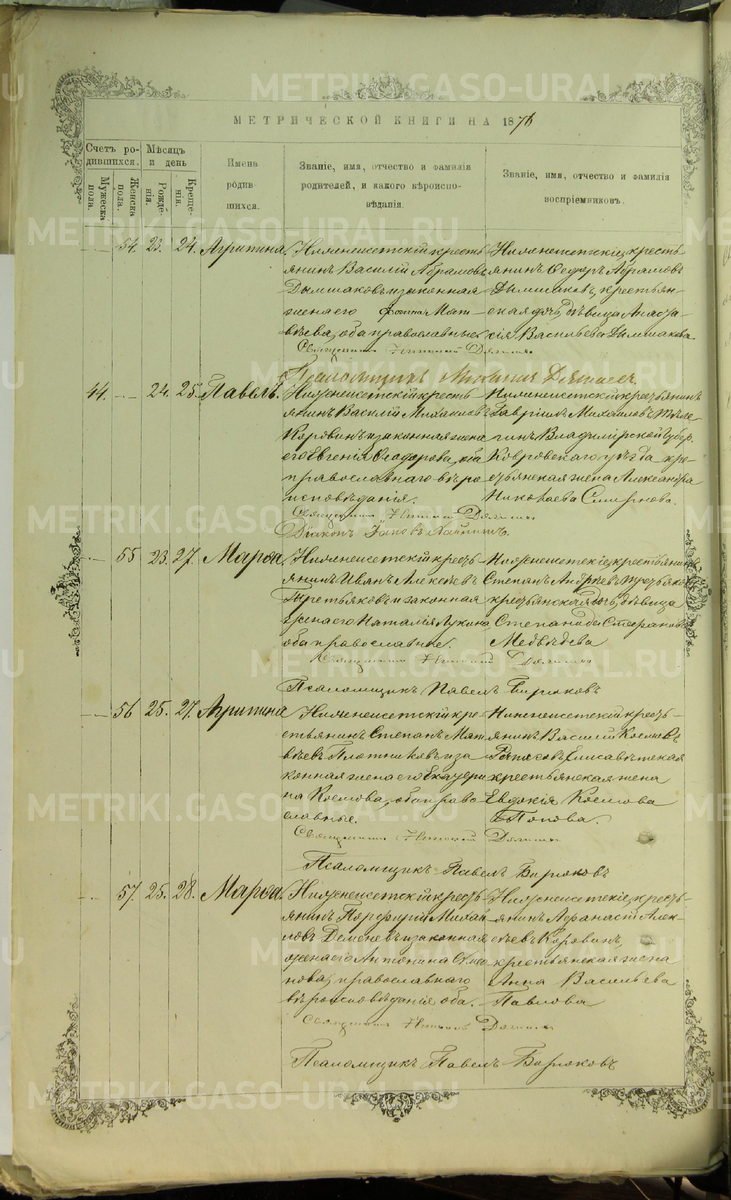 МЕТРИЧЕСКОЙ КНИГИ НА 1876
Счетъ ро-
дившихся.
Мужеска
пола.
Женска
пола.
Мѣсяцъ
и день
Рожде-
нія.
Креще-
нія.
Имена
родив-
шихся.
Званіе, имя, отчество и фамилія
родителей, и какого вѣроиспо-
вѣданія.
Званіе, имя, отчество и фамилія
воспріемниковъ.
54. 23. 24. Агрипина.
Нижнеисетскій кресть
янинъ Василій Абрамовъ
Дымшаковъ и законная
жена его Мат-
вѣева, оба православные
Нижнеисетскіе, кресть-
янинъ Ѳедоръ Абрамовъ
Дымшаковъ, крестьян-
ская дочь, дѣвица Анаста-
сія Васильева Дымшакова
Священникъ
Псаломщикъ
44. 24. 25. Павелъ.
Нижнеисетскій кресть
янинъ Василій Михаиловъ
Коровинъ и законная жена
его Евгенія Ѳеодорова, оба
православнаго вѣро
исповѣданія.
Нижнеисетскій крестьянинъ
Гавріилъ Михаиловъ
Владимірской Губер.
Ковровскаго уѣзда кре
стьянская жена Александра
Николаева Смирнова.
Священникъ
Діаконъ
55 23. 27. Марѳа.
Нижнеисетскій кресть
янинъ Иванъ Алексѣевъ
Третьяковъ и законная
жена его Наталія Лукина
оба православные.
Нижнеисетскіе, крестьянинъ
Степанъ Андреевъ Третьяковъ
крестьянская дочь, дѣвица
Степанида Стефанова
Медвѣдева
Священникъ
Псаломщикъ Павелъ Бирюковъ
56 25. 27. Агрипина
Нижнеисетскій кре
стьянинъ Степанъ Мат
вѣевъ Плотниковъ и за
конная жена его Екатери
на Козмова, оба право
славные.
Нижнеисетскій кресть-
янинъ Василій Космовъ
Елисавѣтская
крестьянская жена
Евдокія Космова
Попова.
Священникъ
Псаломщикъ Павелъ Бирюковъ
57. 25. 28. Марѳа.
Нижнеисетскій кресть
янинъ Порфирій Михаи
ловъ Деменевъ и законная
жена его Антонина
нова, православнаго
вѣроисповѣданія оба.
Нижнеисетскіе, кресть-
янинъ Аѳанасій Алек-
сѣевъ Коровинъ,
крестьянская жена
Анна Васильева
Павлова
Священникъ
Псаломщикъ Павелъ Бирюковъ
METRIKI.GASO-URAL.RU